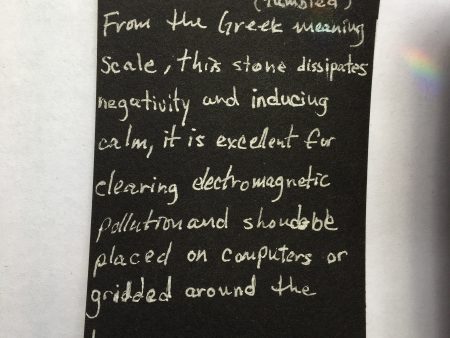 (Tumbled)
From the Greek meaning
Scale, this stone dissipates
negativity and inducing
calm, it is excellent for
clearing electromagnetic
pollution and should be
placed on computers or
gridded around the